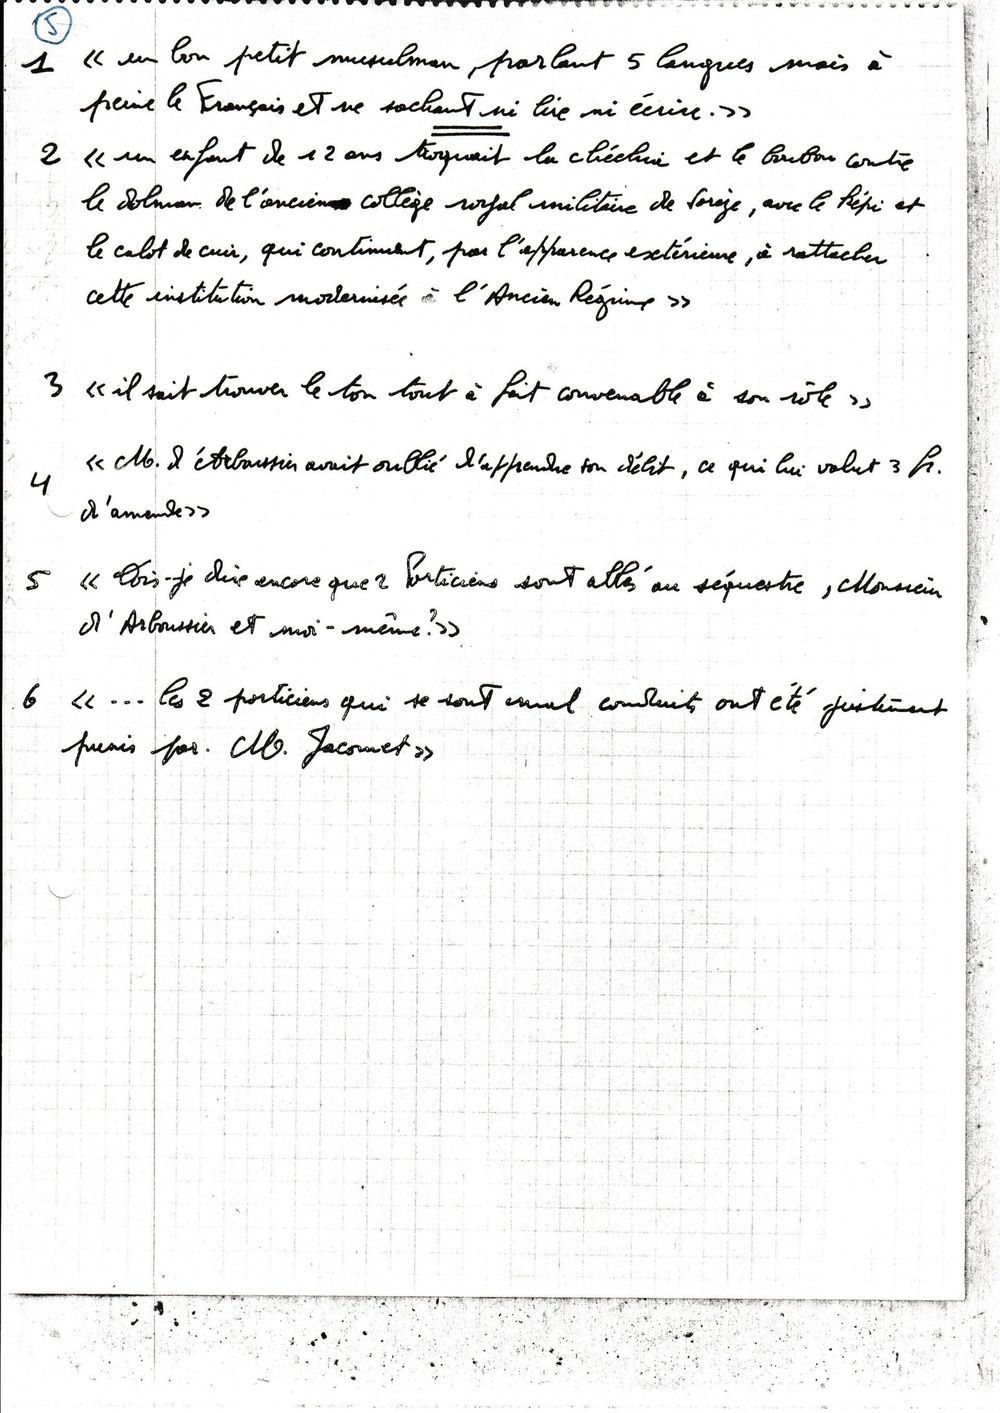 5
1 « un bon petit musulman, parlant 5 langues mais à
peine le Français et ne sachant ni lire ni écrire. »
2 « un enfant de 12 ans troquait la chéchia et le boubou contre
le dolman de l'ancien collège royal militaire de Sorèze, avec le képi et
le calot de cuir, qui continuent, par l'apparence extérieure, à rattacher
cette institution modernisée à l'Ancien Régime »
3 « il sait trouver le ton tout à fait convenable à son rôle »
« M. d'Arboussier avait oublié d'apprendre son débit, ce qui lui valut 3 fr.
4
d'amende »
5 « Dois-je dire encore que 2 Porticiens sont allés au séquestre, Monsieur
d'Arboussier et moi-même? »
6 « ... les 2 porticiens qui se sont mal conduits ont été justement
punis par. M. Jacomet »